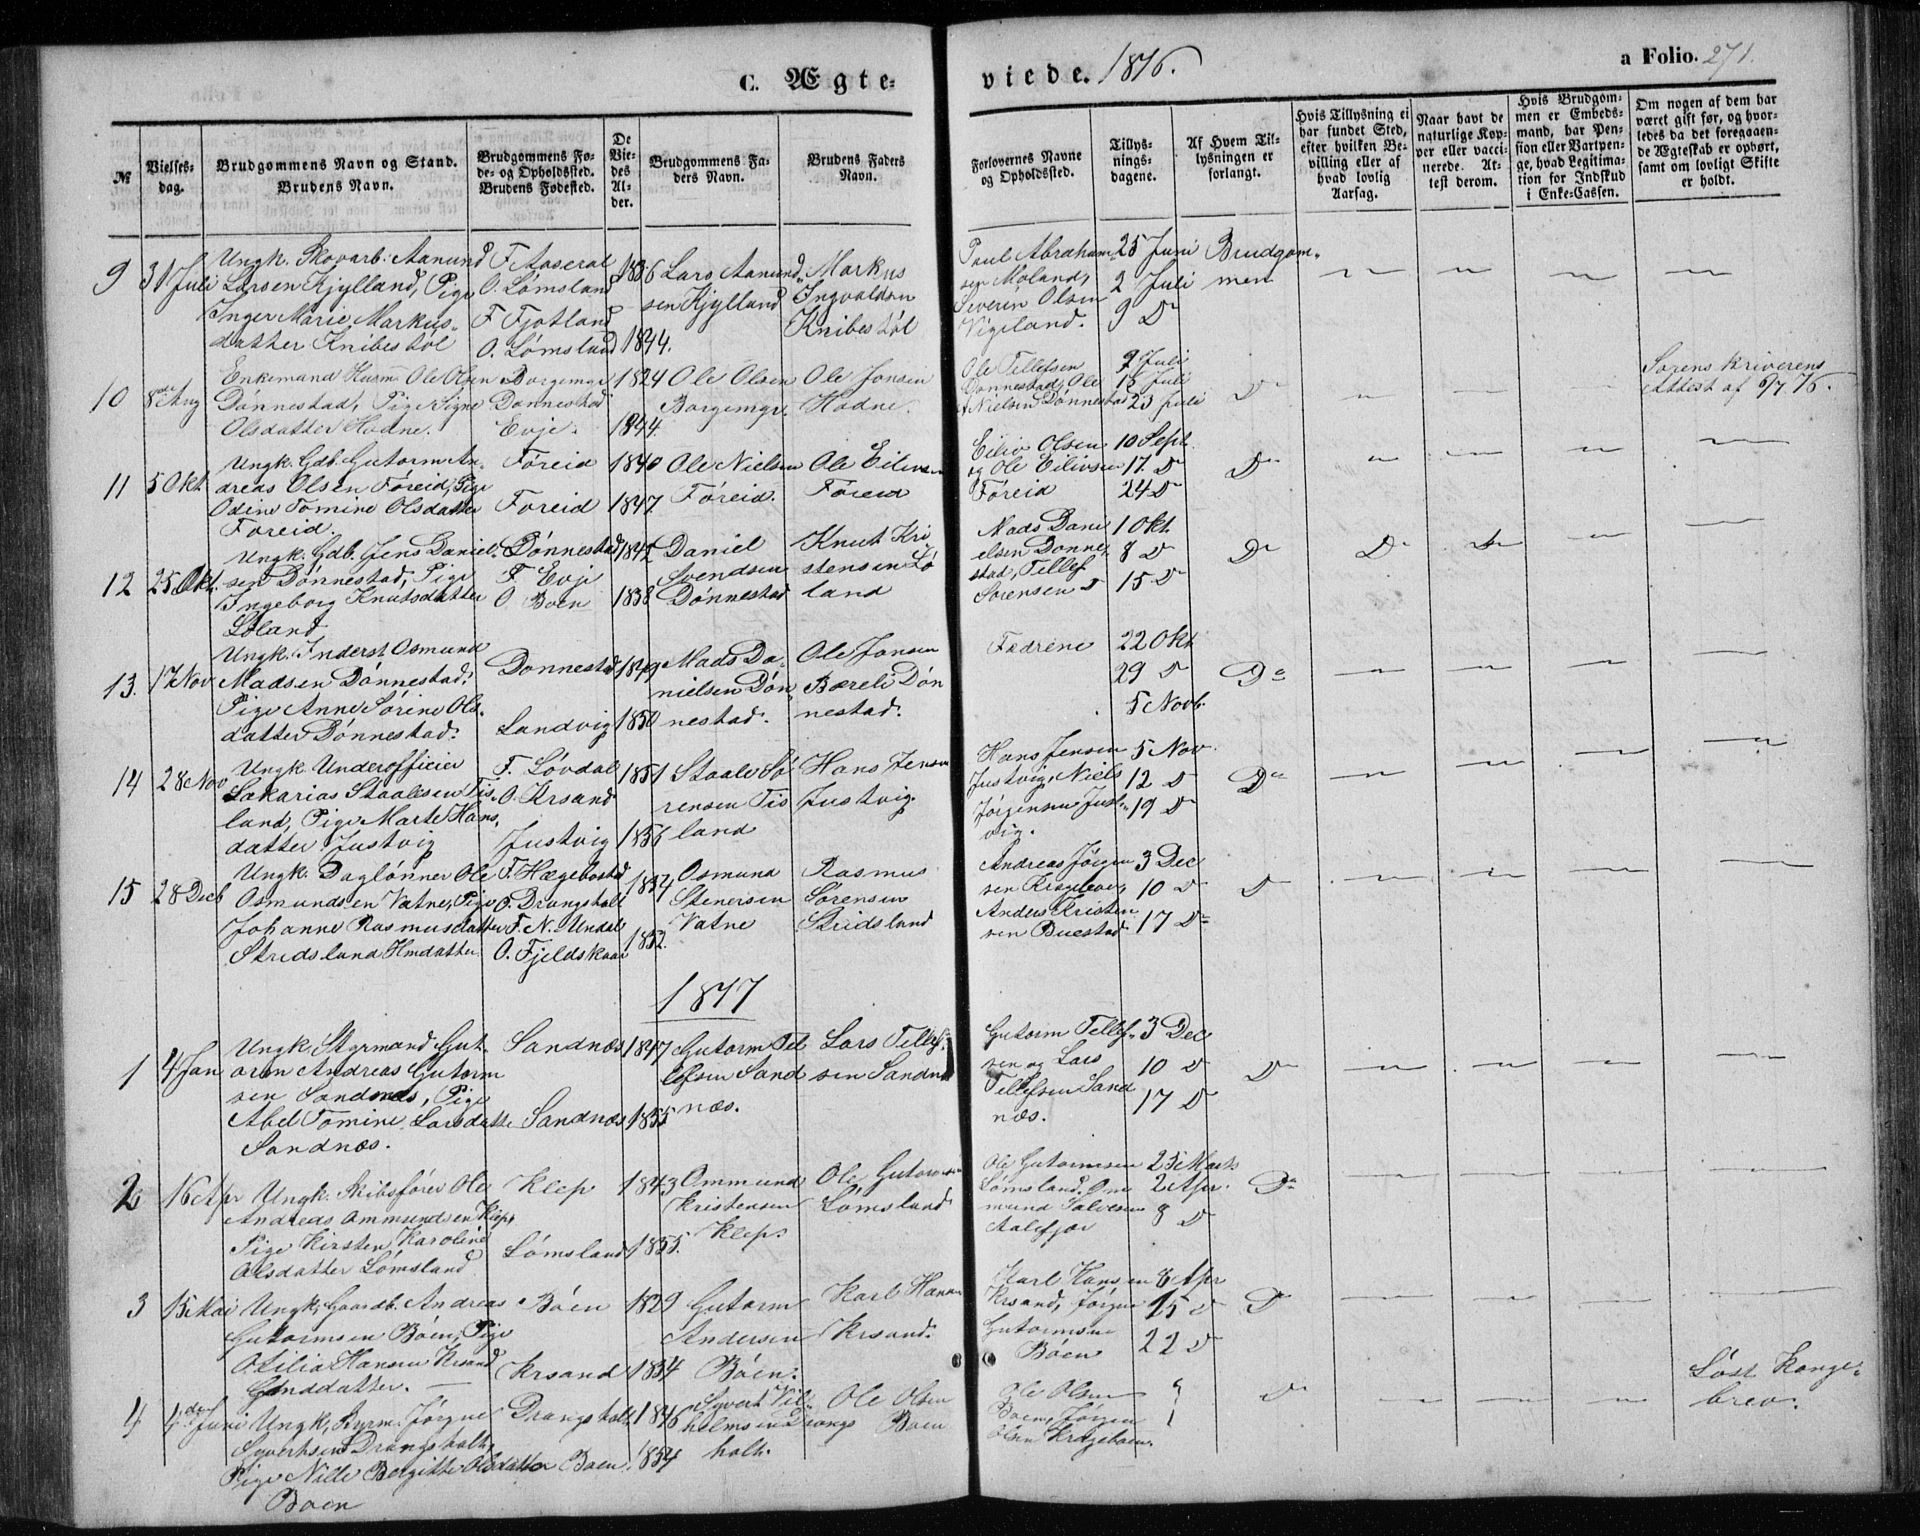 C. Ægte-
viede. 1876.
a Folio. 271.
№
Vielses-
dag.
Brudgommens Navn og Stand.
Brudens Navn.
Brudgommens Fø-
de- og Opholdssted.
Brudens Fødested.
De
Vie-
des
Al-
der.
Brudgommens Fa-
ders Navn.
Brudens Faders
Navn.
Forlovernes Navne
og Opholdssted.
Tillys-
nings-
dagene.
Af Hvem Til-
lysningen er
forlangt.
Hvis Tillysning ei
har fundet Sted,
efter hvilken Be-
villing eller af
hvad lovlig
Aarsag.
Naar havt de
naturlige Kop-
per eller vacci-
nerede. At-
test derom.
Hvis Brudgom-
men er Embeds-
mand, har Pen-
sion eller Vartpen-
ge, hvad Legitima-
tion for Indskud
i Enke-Cassen.
Om nogen af dem har
været gift før, og hvor-
ledes da det foregaaen-
de Ægteskab er ophørt,
samt om lovligt Skifte
er holdt.
9 31 Juli
Ungk. Skovarb. Aanund
Larsen Kjylland, Pige
Inger Marie Markus-
datter Knibestøl
F. Aaseral
O. Lømsland
F. Fjotland
O. Lømsland
1836
1844.
Lars Aanund
sen Kjylland
Markus
Ingvaldsen
Knibestøl
Paul Abraham-
sen Moland,
Severin Olsen
Vigeland.
25 Juni
2 Juli
9 D
Brudgom-
men
10 8de Aug
Enkemand Husm. Ole Olsen
Dønnestad, Pige Signe
Olsdatter Hodne.
Borgemyr
Dønnestad
Evje.
1824
1844.
Ole Olsen
Borgemyr.
Ole Jonsen
Hodne.
Ole Tellefsen
Dønnestad, Ole
Nielsen Dønnestad
9 Juli
15 Juli
23 Juli
D
Sorenskriverens
Attest af 9/7 76.
11 5 Okt
Ungk. Gdb. Gutorm An-
dreas Olsen Føreid, Pige
Odine Tomine Olsdatter
Føreid.
Føreid
Føreid
1840
1847
Ole Nielsen
Føreid.
Ole Eilivsen
Føreid
Eiliv Olsen
og Ole Eilivsen
Føreid
10 Sept.
17. D
24 D
D
12 25 Okt.
Ungk. Gdb. Jens Daniel-
sen Dønnestad, Pige
Ingeborg Knutsdatter
Løland
Dønnestad
F. Evje
O. Boen
1842
1838
Daniel
Svendsen
Dønnestad
Knut Kri
stensen Lø
land
Mads Dani
elsen Dønne-
stad, Tellef
Sørensen D
1 Okt.
8 D
15 D
D
D
13. 17 Nov
Ungk. Inderst Osmund
Madsen Dønnestad,
Pige Anne Sørine Ols-
datter Dønnestad.
Dønnestad
Landvig
1849
1850
Mads Da-
nielsen Døn-
nestad.
Ole Jonsen
Bæreli Døn
nestad.
Fædrene
22 Okt
29 D
5 Novb.
Do
14 28 Nov
Ungk. Underofficier
Sakarias Staalesen Tis-
land, Pige Marte Hans-
datter Justvig
F. Løvdal
O. Krsand
Justvig
1851
1856
Staale Sø
rensen Tis
land
Hans Jensen
Justvig.
Hans Jensen
Justvig, Niels
Jørgensen Just-
vig.
5 Nov.
12 D
19 D
Do
15 28 Decb
Ungk. Dagløner Ole
Osmundsen Vatne, Pige
Johanne Rasmusdatter
Stridsland Hmdatter
F. Hægebostad
O. Drangsholt
F. N. Undal
O. Fjeldskaar
1852.
Osmund
Stenersen
Vatne
Rasmus
Sørensen
Stridsland
Andreas Jørgen
sen Krageboen,
Anders Kristen
sen Buestad
3 Dec
10 D
17 D
D
1877
1 4 Jan
Ungk. Styrmand Gut-
orm Andreas Gutorm
sen Sandnæs, Pige
Abel Tomine Larsdatter
Sandnæs.
Sandnæs
Sandnæs
1847
1855
Gutorm Tel
lefsen Sand
næs.
Lars Tellef-
sen Sandnæs
Gutorm Tellef-
sen og Lars
Tellefsen Sand
næs.
3 Dec
10 D
17 D
D
2 16 Apr
Ungk. Skibsfører Ole
Andreas Ommundsen Klep,
Pige Kirsten Karoline
Olsdatter Lømsland
Klep
Lømsland
1843
1855.
Ommund
Kristensen
Klep.
Ole Gutormsen
Lømsland
Ole Gutormsen
Lømsland. Om
mund Salvesen
Aalefjær
25 Marts
2 Apr.
8 D
Do
3 15 Mai
Ungk. Gaardb. Andreas
Gutormsen Boen, Pige
Otilia Hansen Krsand
Boen
Krsand
1829
1834
Gutorm
Andersen
Boen.
Karl Hansen
Krsand.
Karl Hansen
Krsand, Jørgen
Gutormsen
Boen
8 Apr
15 D
22 D
D
4 4de Juni
Ungk. Styrm. Jørgen
Syvertsen Drangsholt,
Pige Nille Bergitte Olsdatter
Boen
Drangsholt
Boen
1846
1854
Syvert Vil-
helmsen Drangs
holt.
Ole Olsen
Boen
Ole Olsen
Boen, Jørgen
Olsen Krageboen.
D
Løst Konge-
brev.